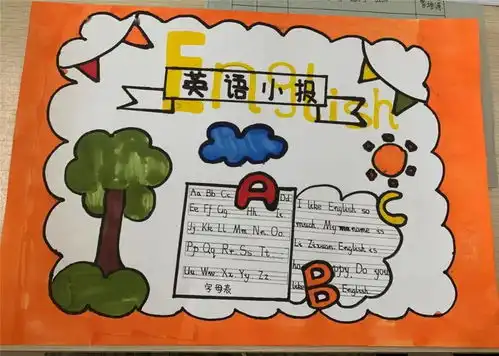 English
英语小报
A
Aa Bb Cc Dd
Ee Ff Gg Hh Ii
Jj Kk Ll Mm Nn Oo
Pp Qq Rr Ss Tt
Uu Vv Ww Xx Yy Zz
字母表
I like English so
much. My name is
Li Zixuan. English is
happy. Do you
like English
C
B